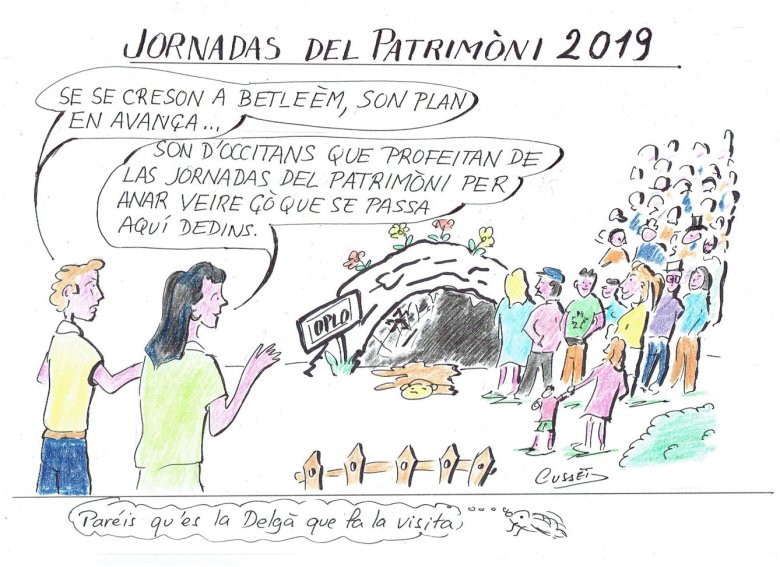 JORNADAS DEL PATRIMÒNI 2019
SE SE CRESON A BETLEÈM, SON PLAN
EN AVANÇA...
SON D'OCCITANS QUE PROFEITAN DE
LAS JORNADAS DEL PATRIMÒNI PER
ANAR VEIRE ÇÒ QUE SE PASSA
AQUÍ DEDINS.
OPLO
CUSSET
Paréis qu'es la Delgà que fa la visita